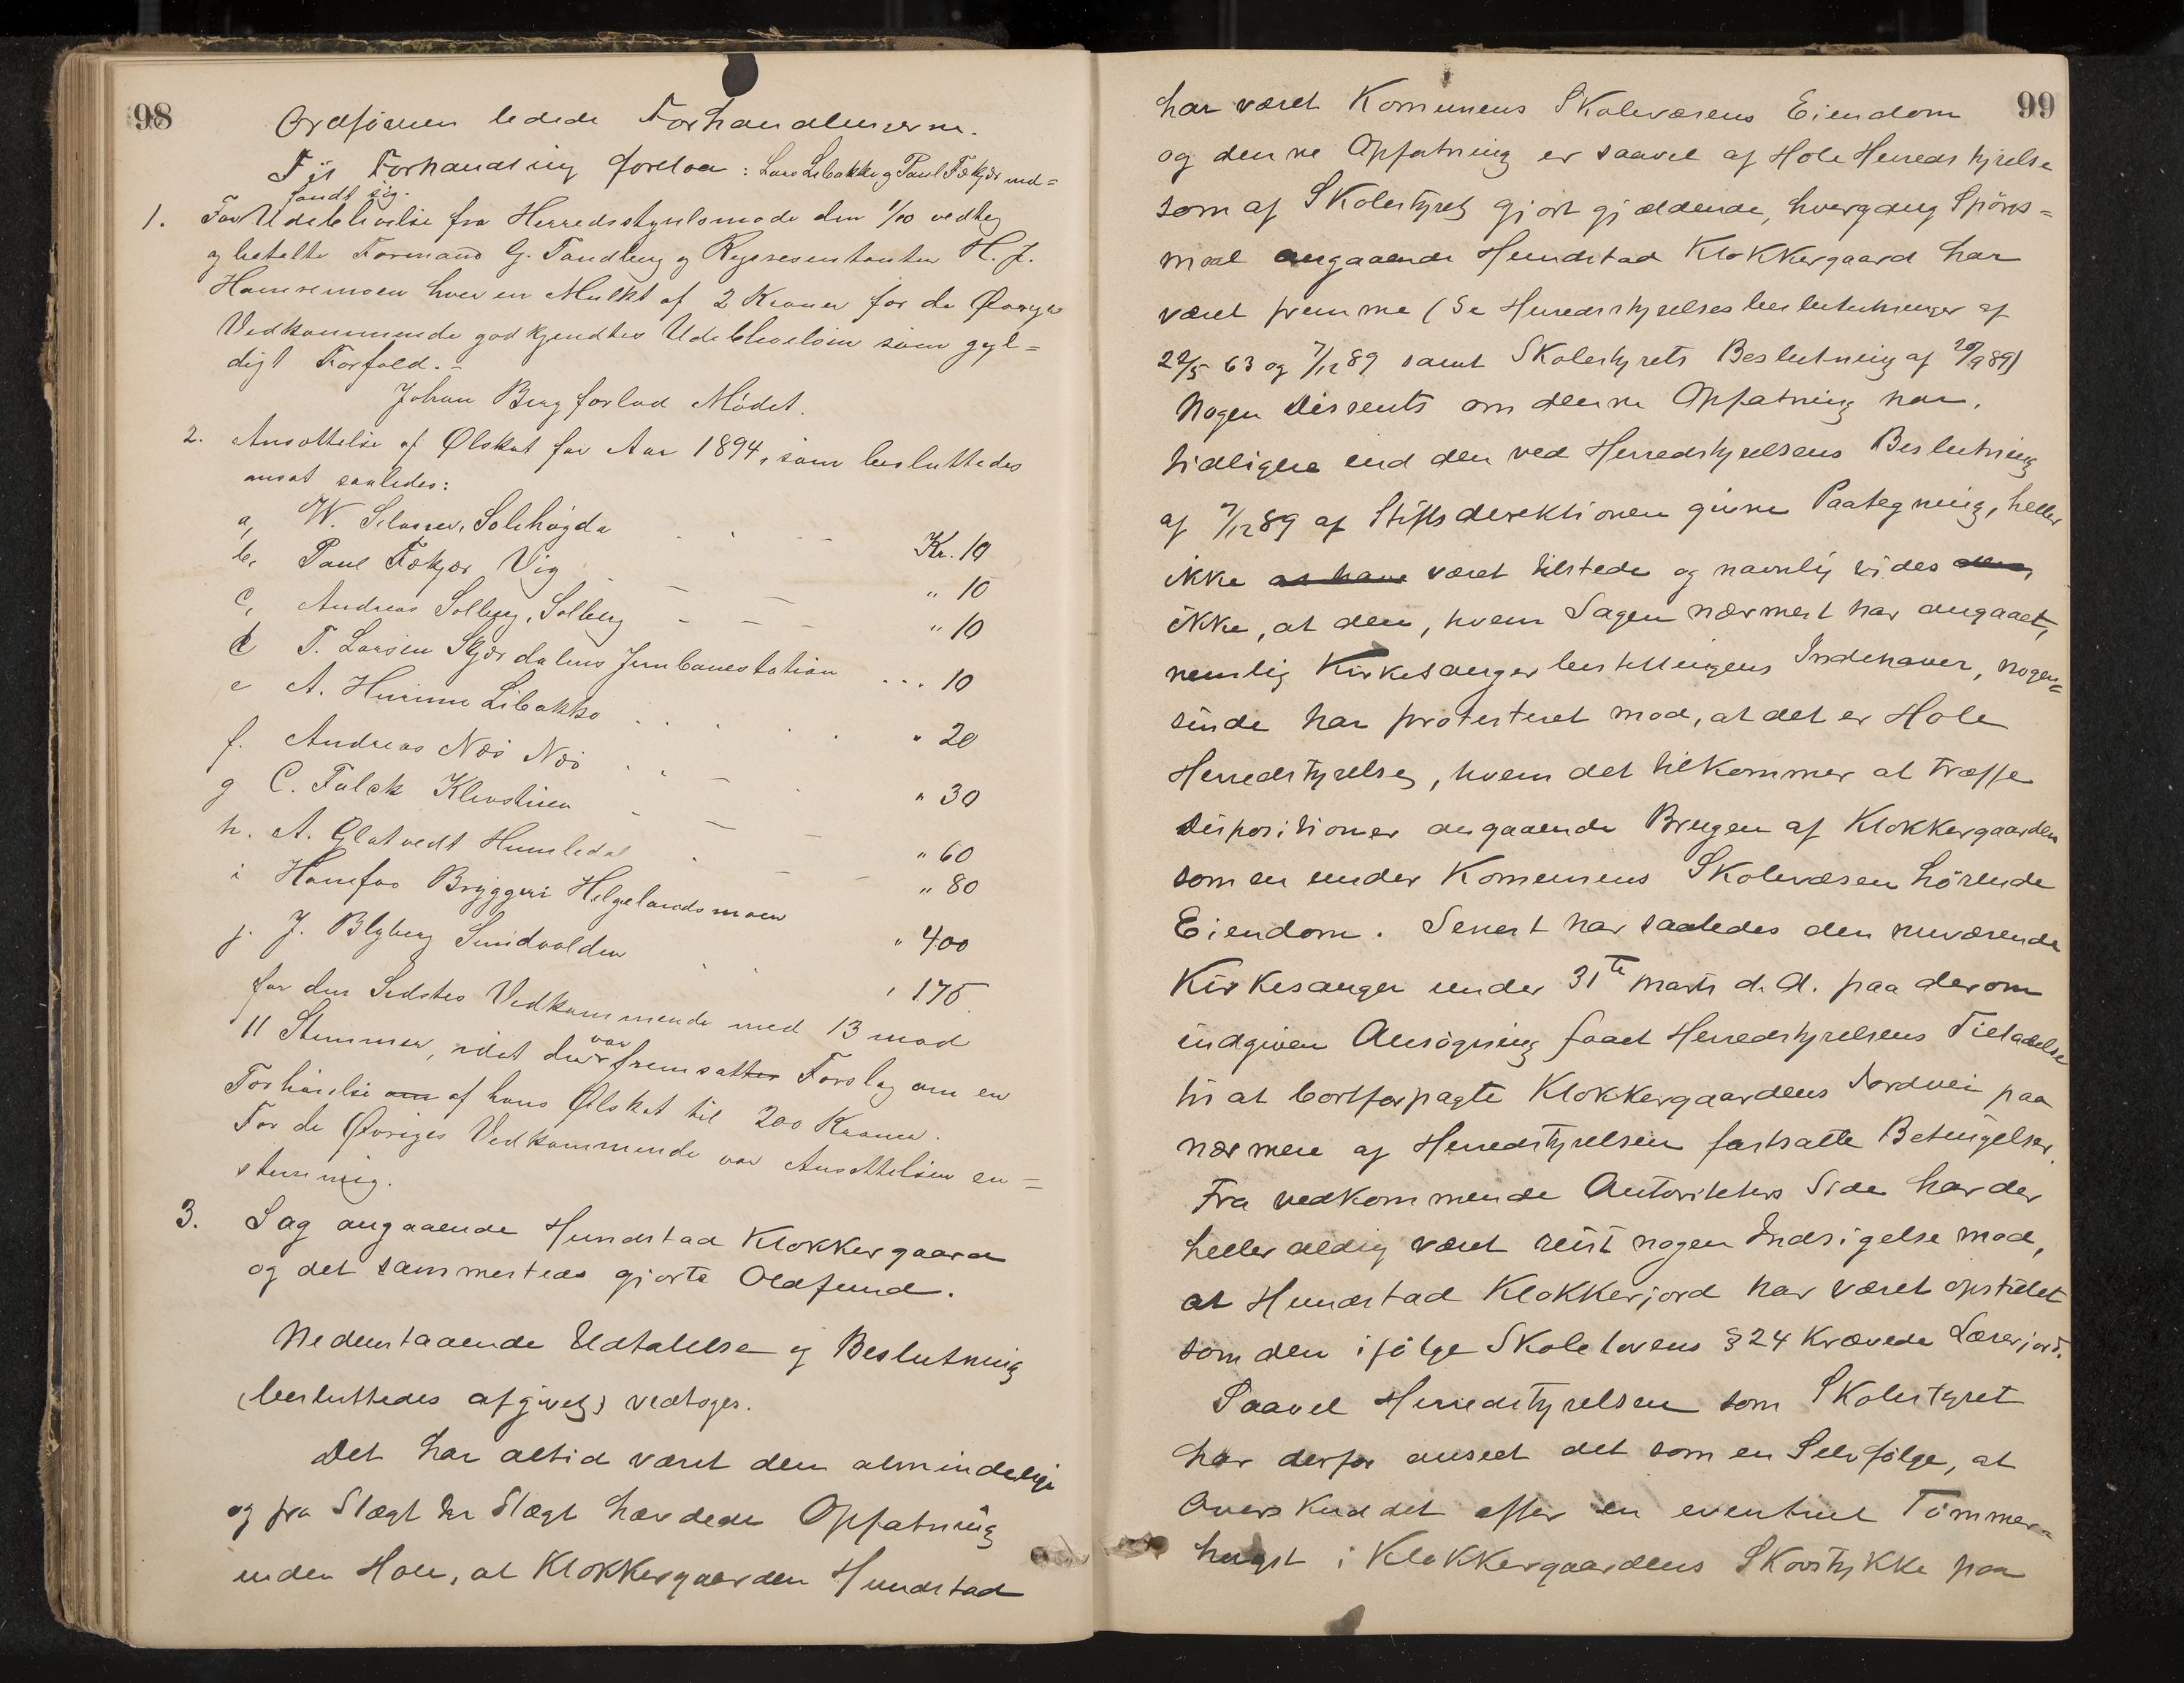 98
Ordføreren ledede Forhandlingerne.
Til Forhandling forelaa: Lars Libakke og Paul Fækjær ind=
fandt sig.
1. For Udeblivelse fra Herredsstyrelsmøde den 1/10 vedtog
og betalte Formand G. Tandberg og Representanten H. J.
Hansemoen hver en Mulkt af 2 Kroner for de Øvriges
Vedkommende godkjendtes Udeblivelsen som gyl=
digt Forfald.-
Johan Berg forlod Mødet.
2. Ansættelse af Ølskat for Aar 1894, som besluttedes
ansat saaledes:
a, W. Solehøgda Kr. 10
b, Paul Fækjær Vig " 10
c, Andreas Solberg, Solberg " 10
d T. Larsen Skjærdalens Jernbanestation ... 10
e A. Libakke " 20
f. Andreas Næs Næs " 30
g C. Falck Klevstuen " 60
h. A. Glatvedt Humledal " 80
i Hønefos Bryggeri Helgelandsmoen " 400
j. J. Blyberg Sundvolden " 175
for den Sidstes Vedkommende med 13 mod
11 Stemmer, idet der var fremsatter Forslag om en
Forhøielse om af hans Ølskat til 200 Kroner.
For de Øvriges Vedkommende var Ansættelsen en=
stemmig.
3. Sag angaaende Hundstad Klokkergaard
og det sammesteds gjorte Oldfund.
Nedenstaaende Udtalelse og Beslutning
(besluttedes afgivet) vedtoges.
Det har altid været den almindelige
og fra Slægt til Slægt hævdede Opfatning
inden Hole, at Klokkergaarden Hundstad
99
har været Komunens Skolevæsens Eiendom
og denne Opfatning er saavel af Hole Herredstyrelse
som af Skolestyret gjort gjældende, hvergang Spörs=
maal angaaende Hundstad Klokkergaard har
været fremme (Se Herredsstyrelses beslutninger af
22/5 63 og 7/12 89 samt Skolestyrets Beslutning af 20/9 89)
Nogen Dissents om denne Opfatning har,
tidligere end den ved Herredstyrelsens Beslutning
af 7/12 89 af Stiftsdirektionen givne Paategning, heller
ikke at have været tilstede og navnlig vides den,
ikke, at den, hvem Sagen nærmest har angaaet,
nemlig Kirkesangerbestillingens Indehaver, nogen=
sinde har protesteret mod, at det er Hole
Herredstyrelse, hvem det tilkommer at træffe
Dispositioner angaaende Brugen af Klokkergaarden
som en under Komunens Skolevæsen hörende
Eiendom. Senest har saaledes den nuværende
Kirkesanger under 31te Marts d. A. paa derom
indgiven Ansögning faaet Herredstyrelsens Tilladelse
til at bortforpagte Klokkergaardens Jordvei paa
nærmere af Herredstyrelsen fastsatte Betingelser.
Fra vedkommende Autoriteters Side har der
heller aldrig været reist nogen Indsigelse mod,
at Hundstad Klokkerjord har været opstillet
som den ifølge Skolelovens § 24 krævede Lærerjord.
Saavel Herredstyrelsen som Skolestyret
har derfor anseet det som en Selvfølge, at
Overskuddet efter en eventuel Tömmer=
hugst i Klokkergaardens Skovstykke paa